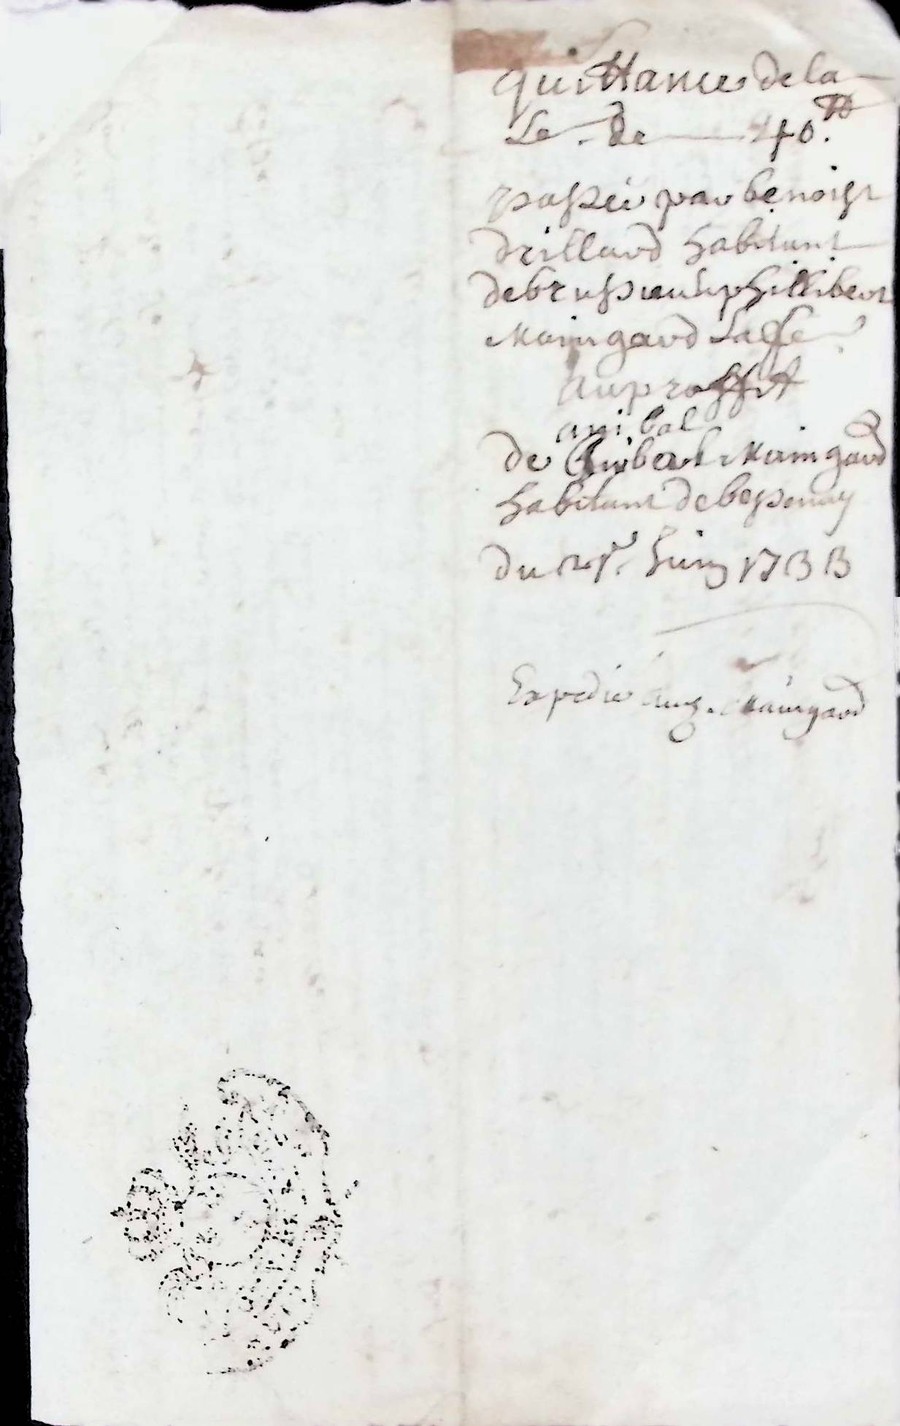 quittance de la
Le - de 40.tt
passée par benoist
drillard habitant
de brussieu a phillibert
Maingard
au proffit
anibal
de Maingard
habitant de bessenay
du 21e. Juin 1733
Expedié Maingard